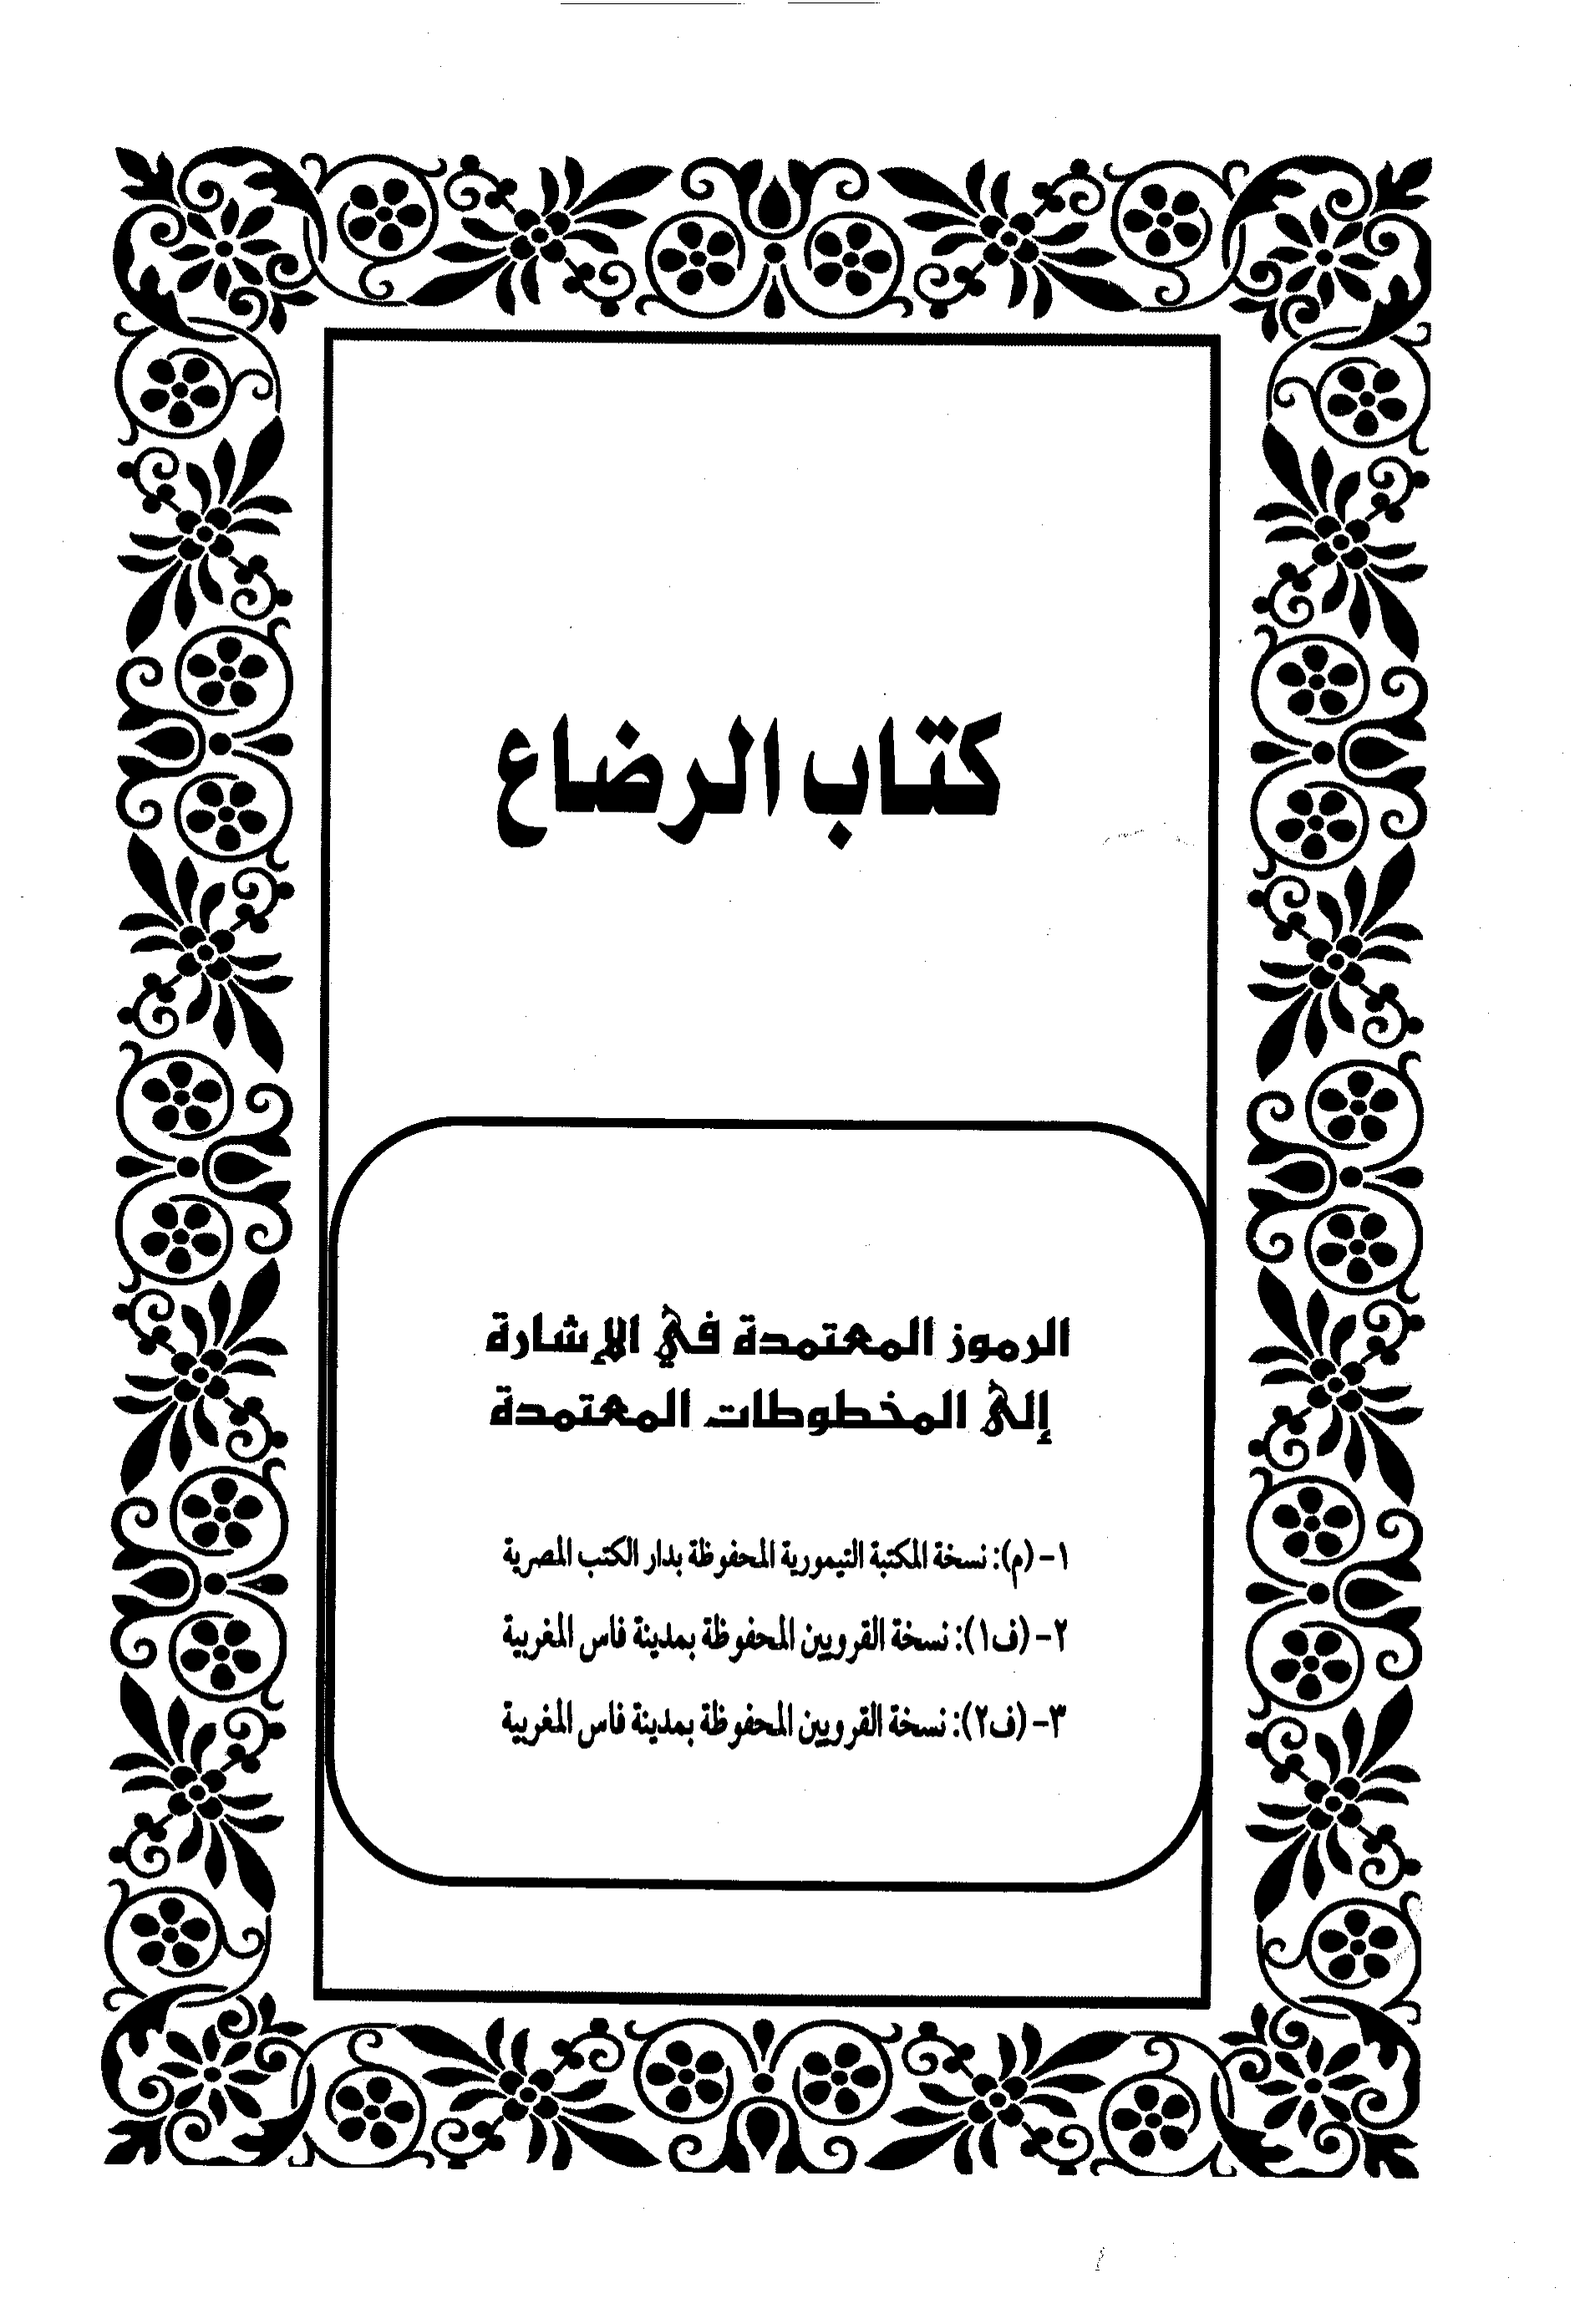 كتاب الرضاع
الرموز المعتمدة في الإشارة
إلى المخطوطات المعتمدة
١- (م): نسخة المكتبة التيمورية المحفوظة بدار الكتب المصرية
٢- (ف١): نسخة القرويين المحفوظة بمدينة فاس المغربية
٣- (ف٢): نسخة القرويين المحفوظة بمدينة فاس المغربية